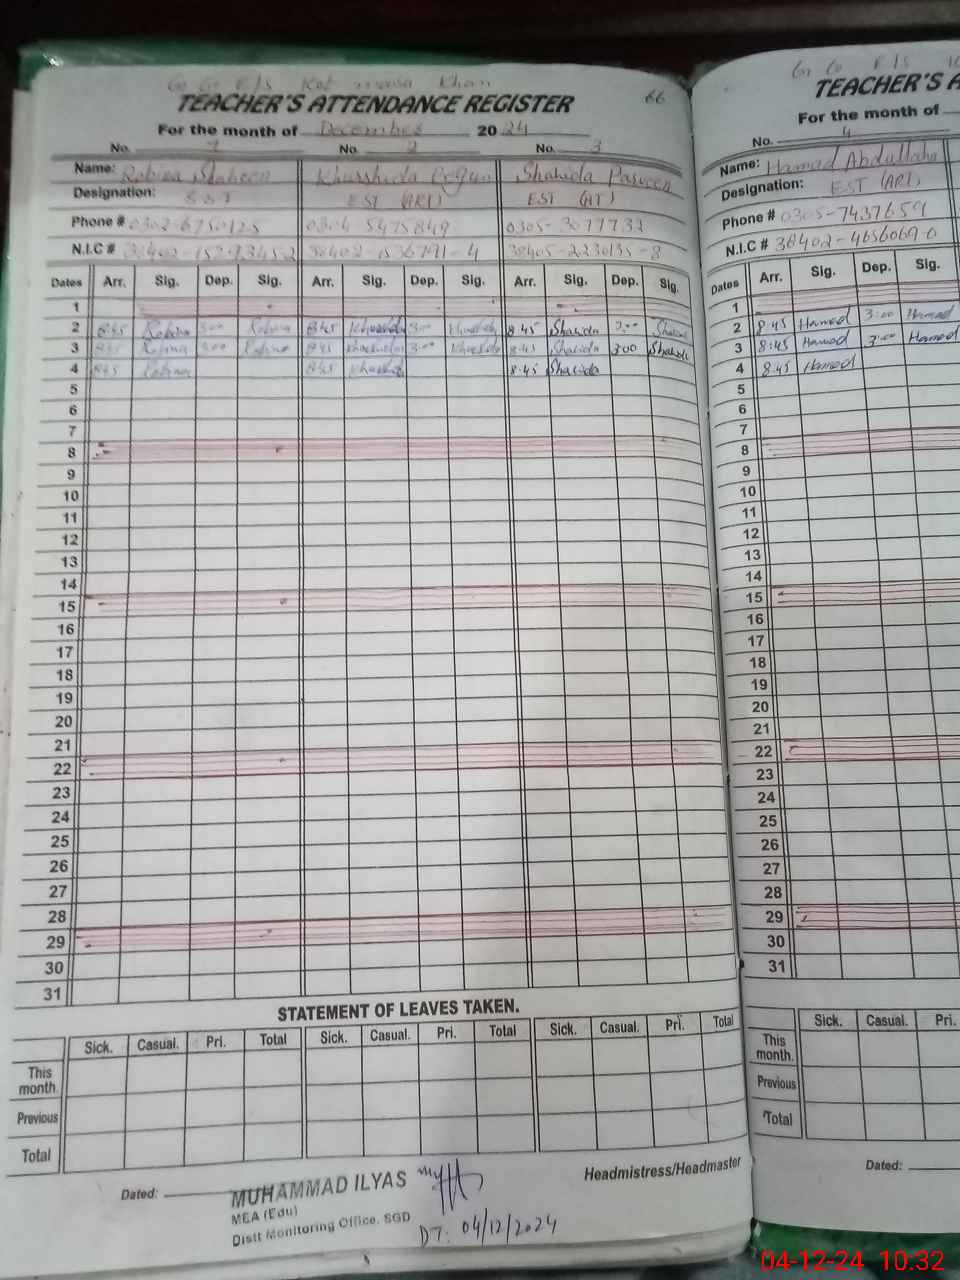 G G E/S Kot musa Khan
TEACHER'S ATTENDANCE REGISTER 66
For the month of December 2024
No. 1 No. 2 No. 3
Name: Robina Shaheen Khurshida Begum Shahida Parveen
Designation: EST (ARI) EST (AT)
Phone # 0302-6750125 0304 5475849 0305-3077732
N.I.C # 38402-1536791-4 38405-2230135-8
Dates Arr. Sig. Dep. Sig. Arr. Sig. Dep. Sig. Arr. Sig. Dep. Sig.
1
2 8:45 Robina 3:00 Robina 8:45 Khurshida 3:00 Khurshida 8:45 Shahida 3:00 Shahida
3 8:45 Robina 3:00 Robina 8:45 Khurshida 3:00 Khurshida 8:45 Shahida 3:00 Shahida
4 8:45 Robina 8:45 Khurshida 8:45 Shahida
5
6
7
8
9
10
11
12
13
14
15
16
17
18
19
20
21
22
23
24
25
26
27
28
29
30
31
STATEMENT OF LEAVES TAKEN.
Sick. Casual. Pri. Total Sick. Casual. Pri. Total Sick. Casual. Pri. Total
This month.
Previous
Total
Dated: Headmistress/Headmaster
MUHAMMAD ILYAS
MEA (Edu)
Distt Monitoring Office, SGD
DT: 04/12/2024
G G E/S
TEACHER'S A
For the month of
No. 4
Name: Hamad Abdullaha
Designation: EST (ARI)
Phone # 0305-7437659
N.I.C # 38402-4656069-0
Dates Arr. Sig. Dep. Sig.
1
2 8:45 Hamad 3:00 Hamad
3 8:45 Hamad 3:00 Hamad
4 8:45 Hamad
5
6
7
8
9
10
11
12
13
14
15
16
17
18
19
20
21
22
23
24
25
26
27
28
29
30
31
Sick. Casual. Pri.
This month.
Previous
Total
Dated:
04-12-24 10:32